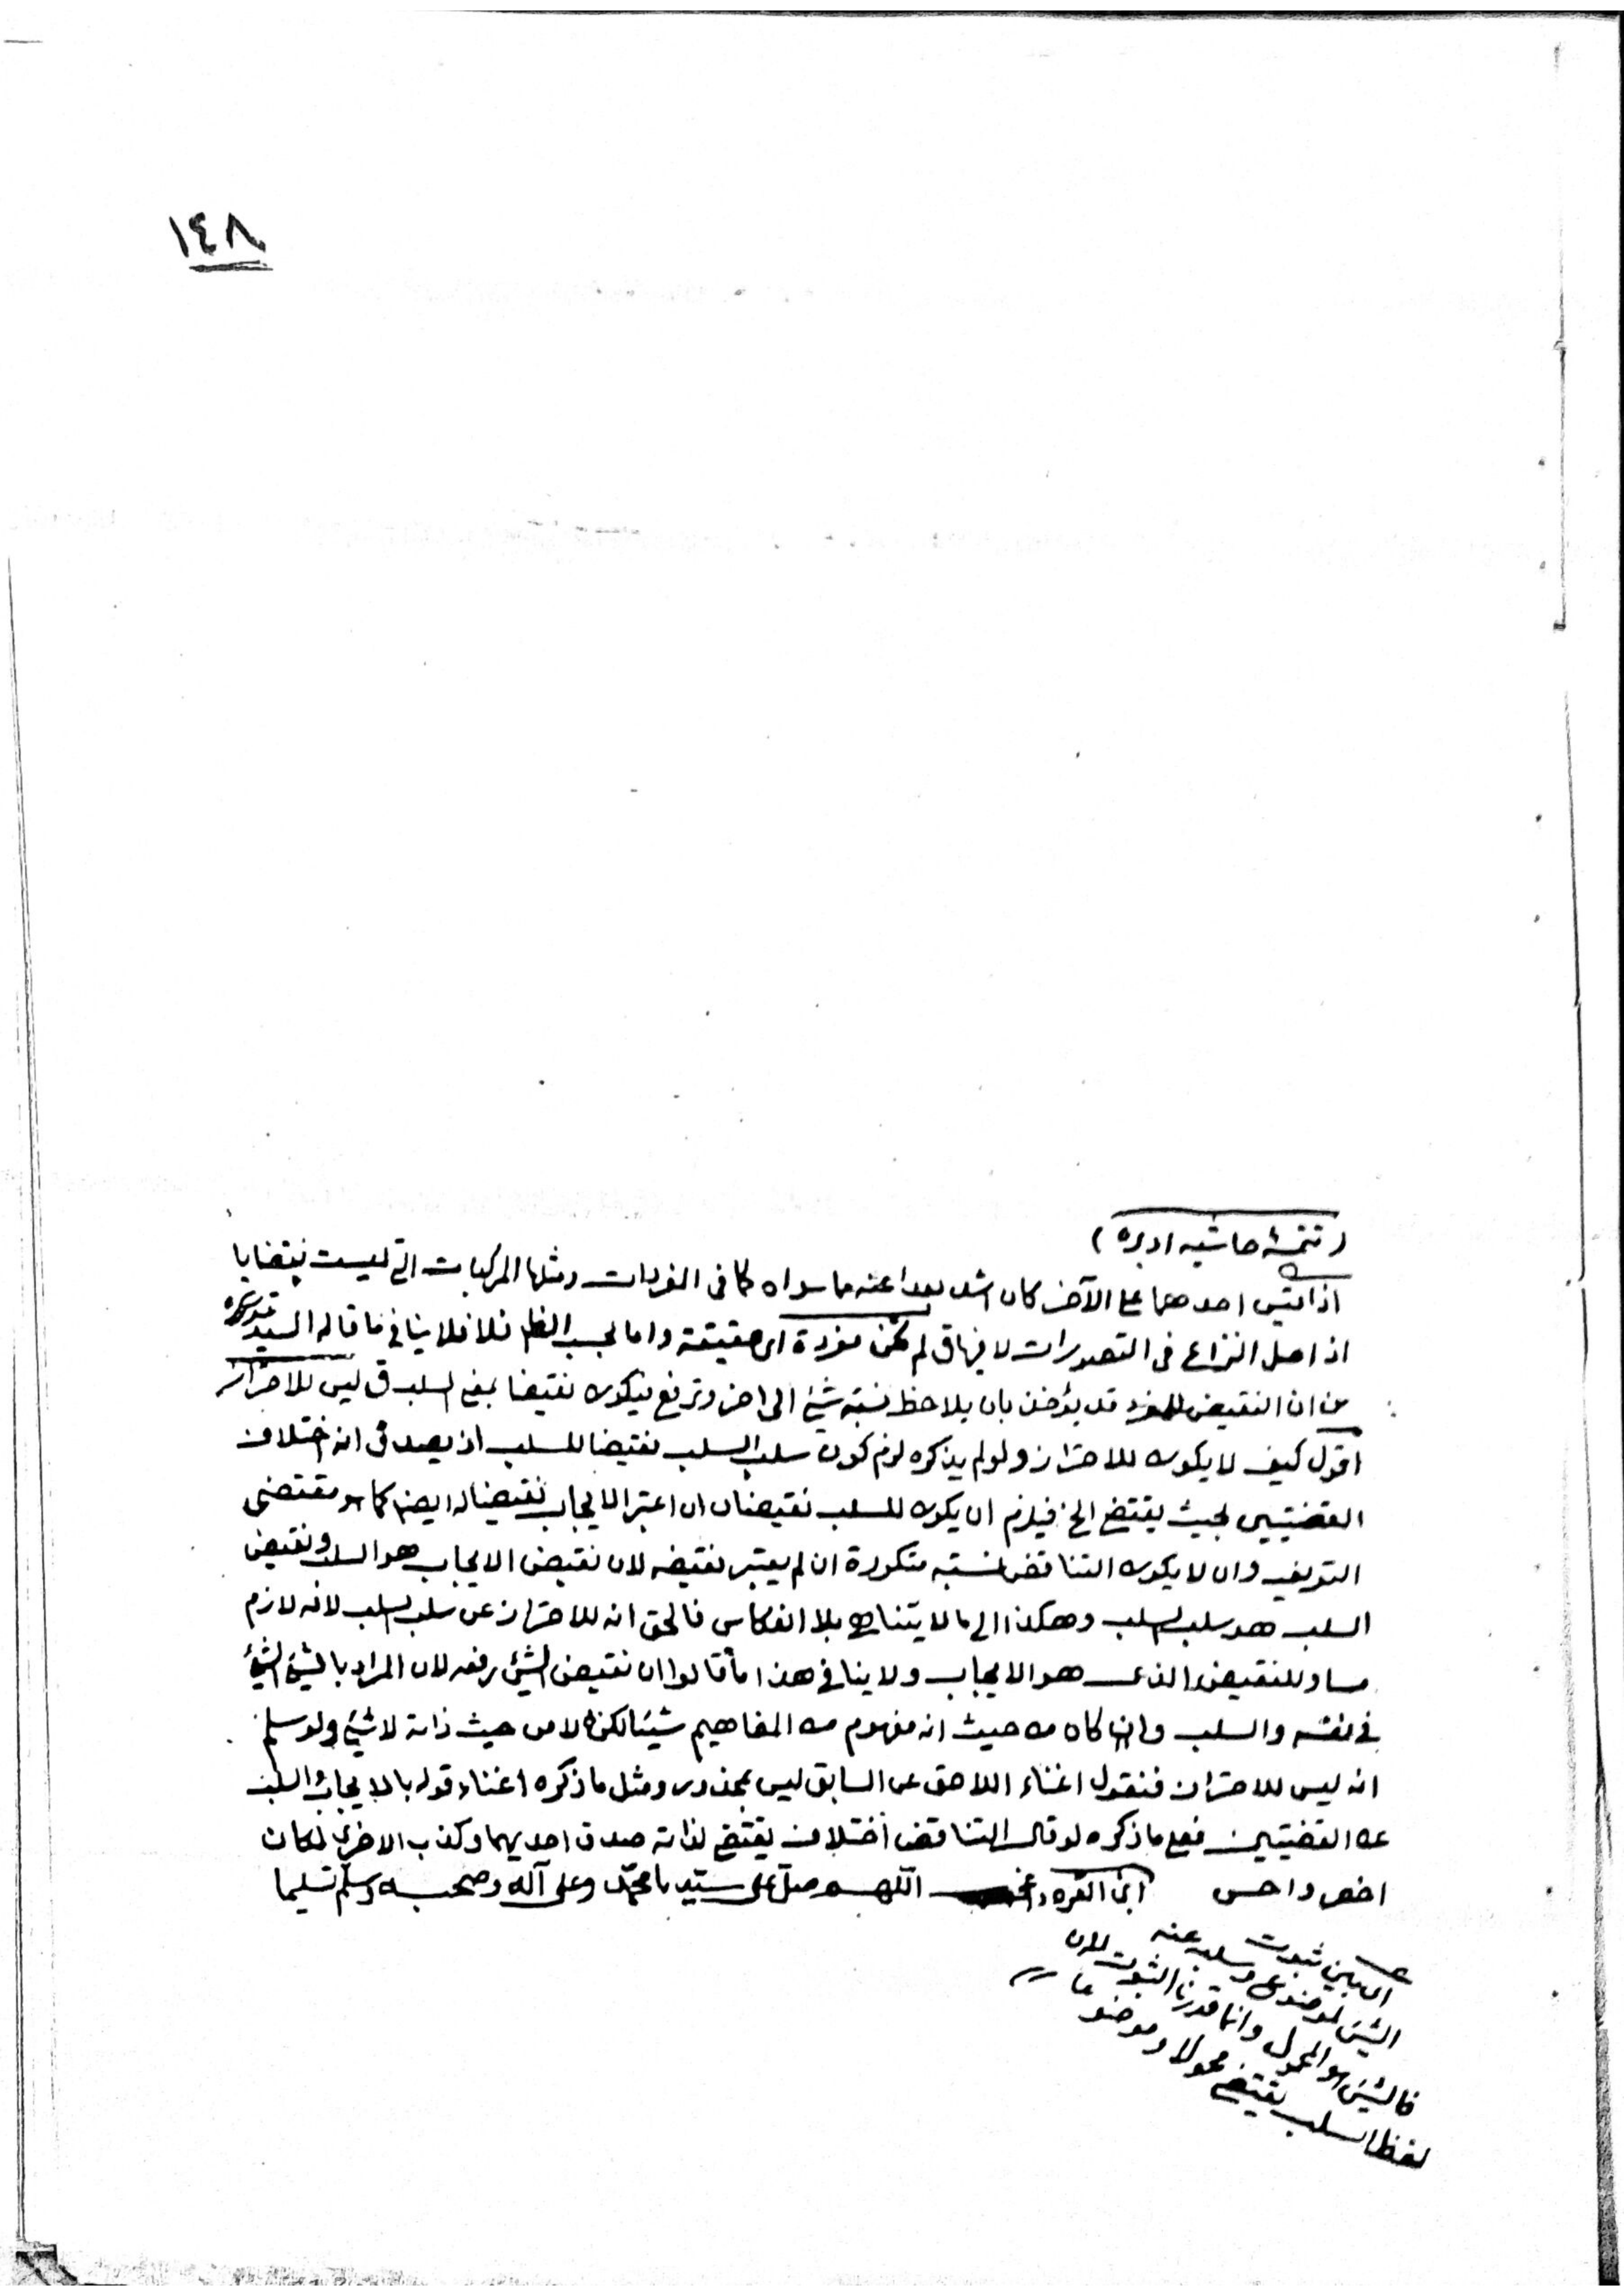 ١٤٨
(تتمة حاشيه
اذا قيس احدهما على الآخر كان اشد بعدا عنه ما سواه كما فى المفردات ومثلها المركبات التى ليست بقضايا
اذ اصل النزاع فى التصورات لا فيها ق لم تكن مفردة اى حقيقة واما بحسب الظاهر فلا فلا ينافى ما قاله السيد قدس سره
من ان النقيض للمفرد قد يؤخذ بان يلاحظ نسبة شئ الى اخر وترفع فيكون نقيضا بمعنى السلب ق ليس للاحتراز
اقول كيف لا يكون للاحتراز ولو لم يذكره لزم كون سلب السلب نقيضا للسلب اذ يصدق انه اختلاف
القضيتين بحيث يقتضى الخ فيلزم ان يكون للسلب نقيضان ان اعتبر الايجاب نقيضا له ايضا كما هو مقتضى
التعريف وان لا يكون التناقض نسبة متكررة ان لم يعتبر نقيضه لان نقيض الايجاب هو السلب ونقيض
السلب هو سلب السلب وهكذا الى ما لا يتناهى بلا انعكاس فالحق انه للاحتراز عن سلب السلب لانه لازم
مساو للنقيض الذى هو الايجاب ولا ينافى هذا ما قالوا ان نقيض الشئ رفعه لان المراد بالشئ الشئ
فى نفسه والسلب وان كان من حيث انه مفهوم من المفاهيم شيئا لكنه لا من حيث ذاته لا شئ ولو سلم
انه ليس للاحتراز فنقول اغناء اللاحق عن السابق ليس بمحذور ومثل ما ذكره اغناء قوله بالايجاب والسلب
عن القضيتين فعلى ما ذكره لو قال التناقض اختلاف يقتضى لذاته صدق احديهما وكذب الاخرى لكان
اخصر واحسن ابن القره داغى اللهم صل على سيدنا محمد وعلى آله وصحبه وسلم تسليما
اى بين ثبوت
الشئ لموضوع وسلبه عنه
فالشئ هو المحمول وانما قدرنا الثبوت لان
لفظ السلب يقتضى محمولا وموضوعا